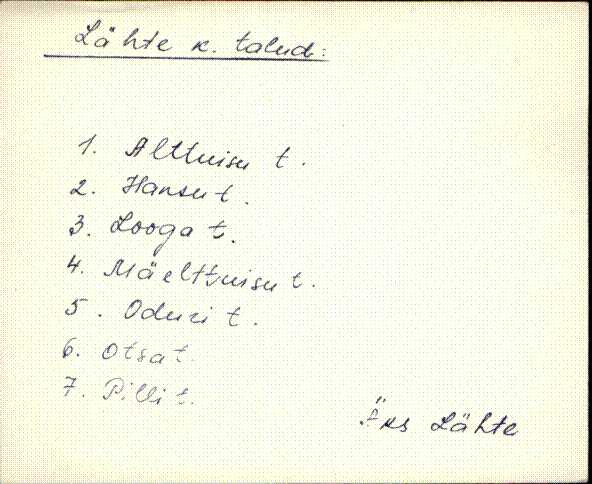 Lähte k. talud:
1. Alttuisu t.
2. Hansu t.
3. Looga t.
4. Mäelttuisu t.
5. Oduri t.
6. Otsa t.
7. Pilli t.
Äks Lähte